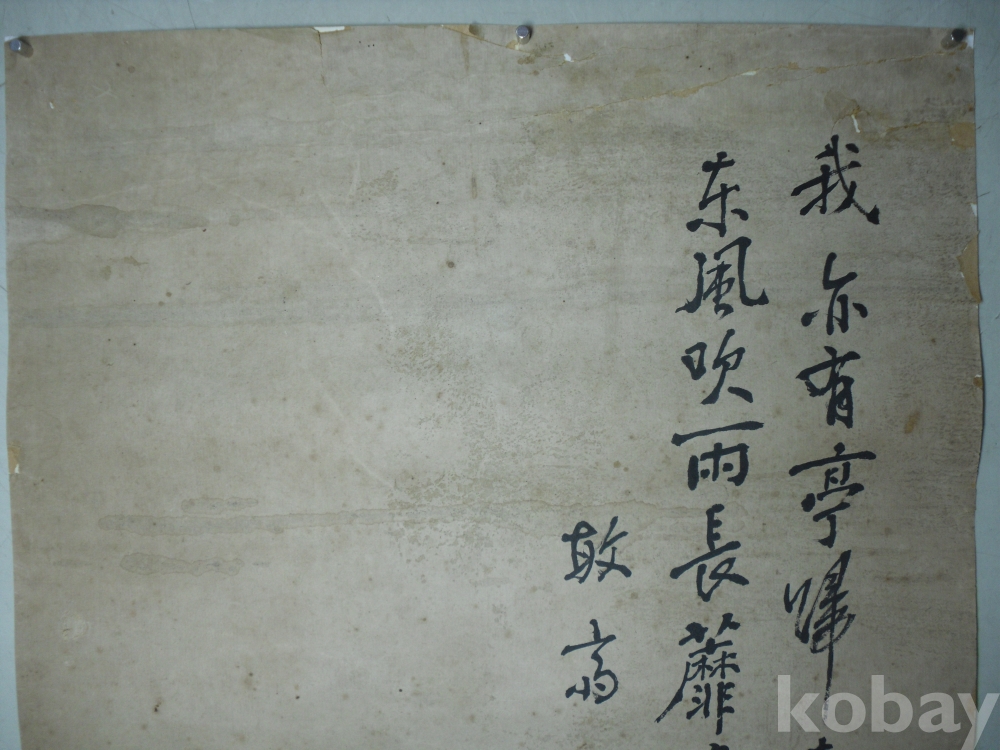 我亦有亭歸
东風吹雨長蘼
敢
kobay